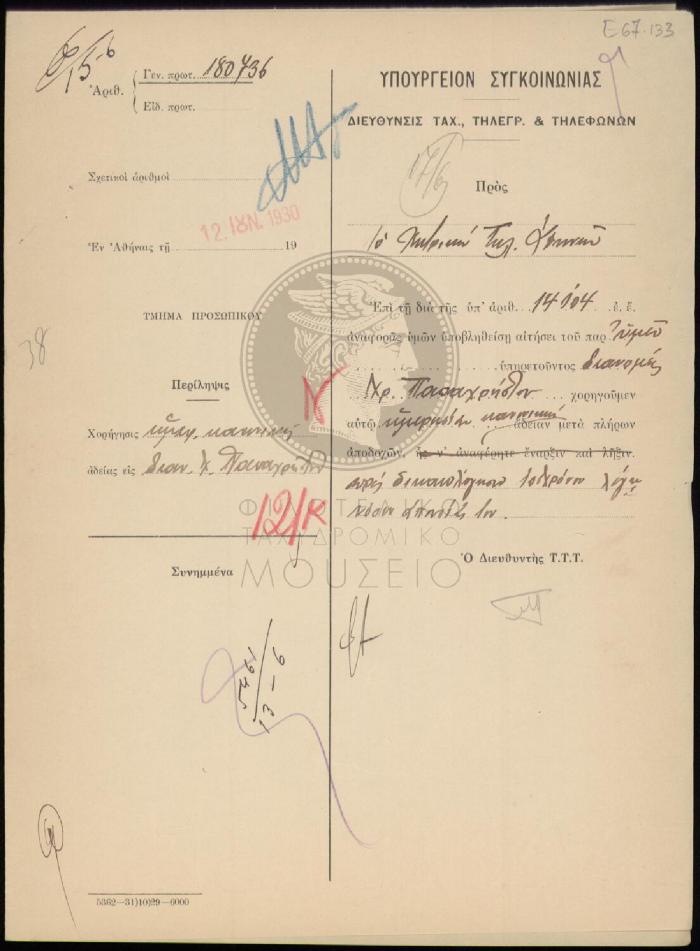 E67.133
15-6
Ἀριθ.
Γεν. πρωτ. 180436
Εἰδ. πρωτ.
Σχετικοὶ ἀριθμοὶ
12. ΙΟΥΝ. 1930
Ἐν Ἀθήναις τῇ 19
ΤΜΗΜΑ ΠΡΟΣΩΠΙΚΟΥ
38
Περίληψις
Χορήγησις κανονικῆς
ἀδείας εἰς διαν. Χ. Παπαχρήστον
12/Κ
Συνημμένα
5461
13-6
5362—31)10)29—6000
ΥΠΟΥΡΓΕΙΟΝ ΣΥΓΚΟΙΝΩΝΙΑΣ
ΔΙΕΥΘΥΝΣΙΣ ΤΑΧ., ΤΗΛΕΓΡ. & ΤΗΛΕΦΩΝΩΝ
17/6
Πρὸς
Τηλ. Ἀθηνῶν
Ἐπὶ τῇ διὰ τῆς ὑπ' ἀριθ. 14104 ἐ. ἔ.
ἀναφορᾶς ὑμῶν ὑποβληθείσῃ αἰτήσει τοῦ παρ' Ὑμῖν
ὑπηρετοῦντος διανομέως
Χρ. Παπαχρήστου χορηγοῦμεν
αὐτῷ κανονικὴν ἄδειαν μετὰ πλήρων
ἀποδοχῶν, ἧς ν' ἀναφέρητε ἔναρξιν καὶ λῆξιν.
πρὸς δικαιολόγησιν
Ὁ Διευθυντὴς Τ.Τ.Τ.
ΦΙΛΟΤΕΛΙΚΟ
ΤΑΧΥΔΡΟΜΙΚΟ
ΜΟΥΣΕΙΟ